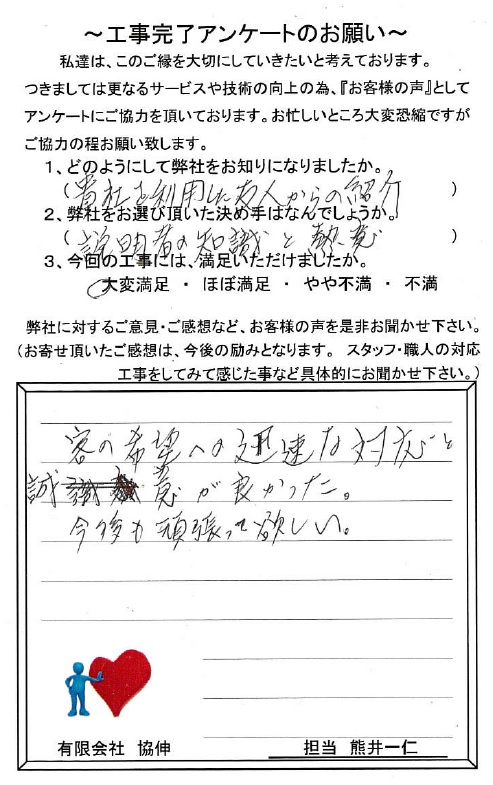 ～工事完了アンケートのお願い～
私達は、このご縁を大切にしていきたいと考えております。
つきましては更なるサービスや技術の向上の為、『お客様の声』として
アンケートにご協力を頂いております。お忙しいところ大変恐縮ですが
ご協力の程お願い致します。
1、どのようにして弊社をお知りになりましたか。
（貴社を利用した友人からの紹介）
2、弊社をお選び頂いた決め手はなんでしょうか。
（説明者の知識と熱意）
3、今回の工事には、満足いただけましたか。
大変満足 ・ ほぼ満足 ・ やや不満 ・ 不満
弊社に対するご意見・ご感想など、お客様の声を是非お聞かせ下さい。
（お寄せ頂いたご感想は、今後の励みとなります。 スタッフ・職人の対応
工事をしてみて感じた事など具体的にお聞かせ下さい。）
客の希望への迅速な対応と
誠意が良かった。
今後も頑張って欲しい。
有限会社 協伸
担当 熊井一仁